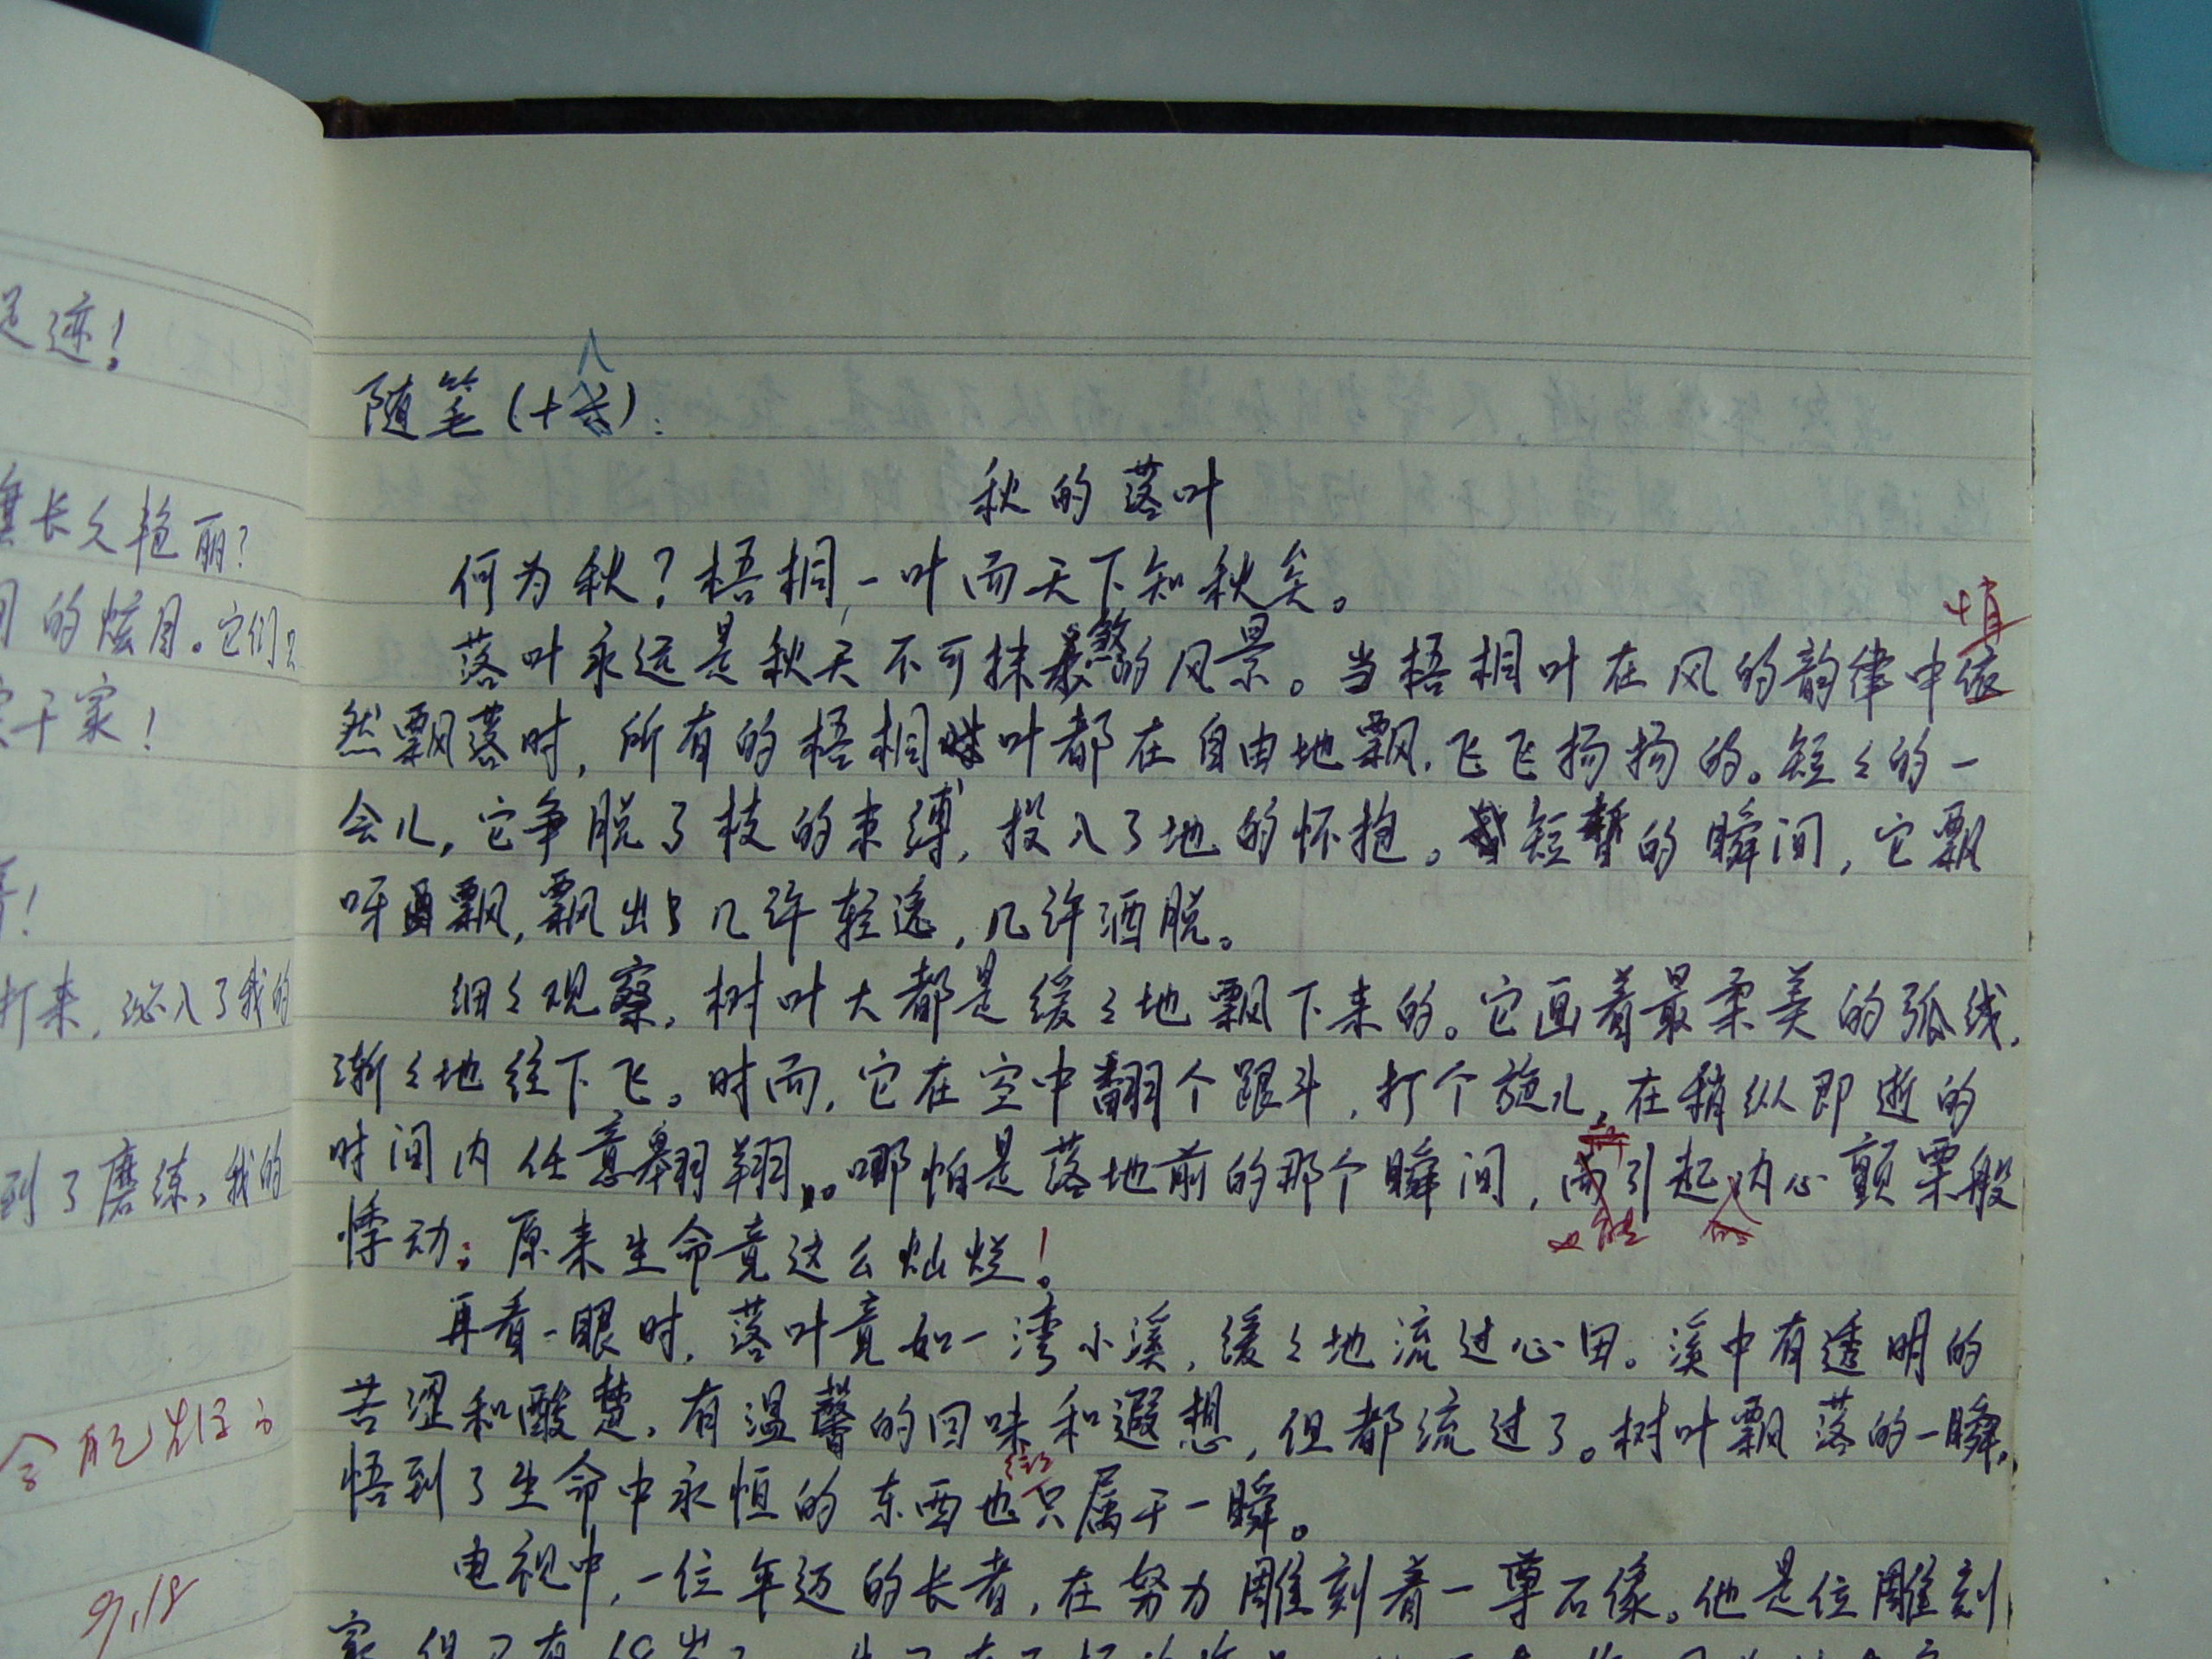 足迹！
长久艳丽？
的炫目。它们
于家！
打来，涌入了我的
到了磨练，我的
9.18
八
随笔（十六）：
秋的落叶
何为秋？梧桐一叶而天下知秋矣。
悄
落叶永远是秋天不可抹煞的风景。当梧桐叶在风的韵律中依
然飘落时，所有的梧桐叶都在自由地飘，飞飞扬扬的。短々的一
会儿，它争脱了枝的束缚，投入了地的怀抱。短暂的瞬间，它飘
呀飘，飘出几许轻逸，几许洒脱。
细々观察，树叶大都是缓々地飘下来的。它画着最柔美的弧线，
渐々地往下飞。时而，它在空中翻个跟斗，打个旋儿，在稍纵即逝的
时间内任意翱翔。哪怕是落地前的那个瞬间，而引起内心颤栗般
也能
悸动：原来生命竟这么灿烂！
再看一眼时，落叶竟如一湾小溪，缓々地流过心田。溪中有透明的
苦涩和酸楚，有温馨的回味和遐想，但都流过了。树叶飘落的一瞬，
往往
悟到了生命中永恒的东西也只属于一瞬。
电视中，一位年迈的长者，在努力雕刻着一尊石像。他是位雕刻